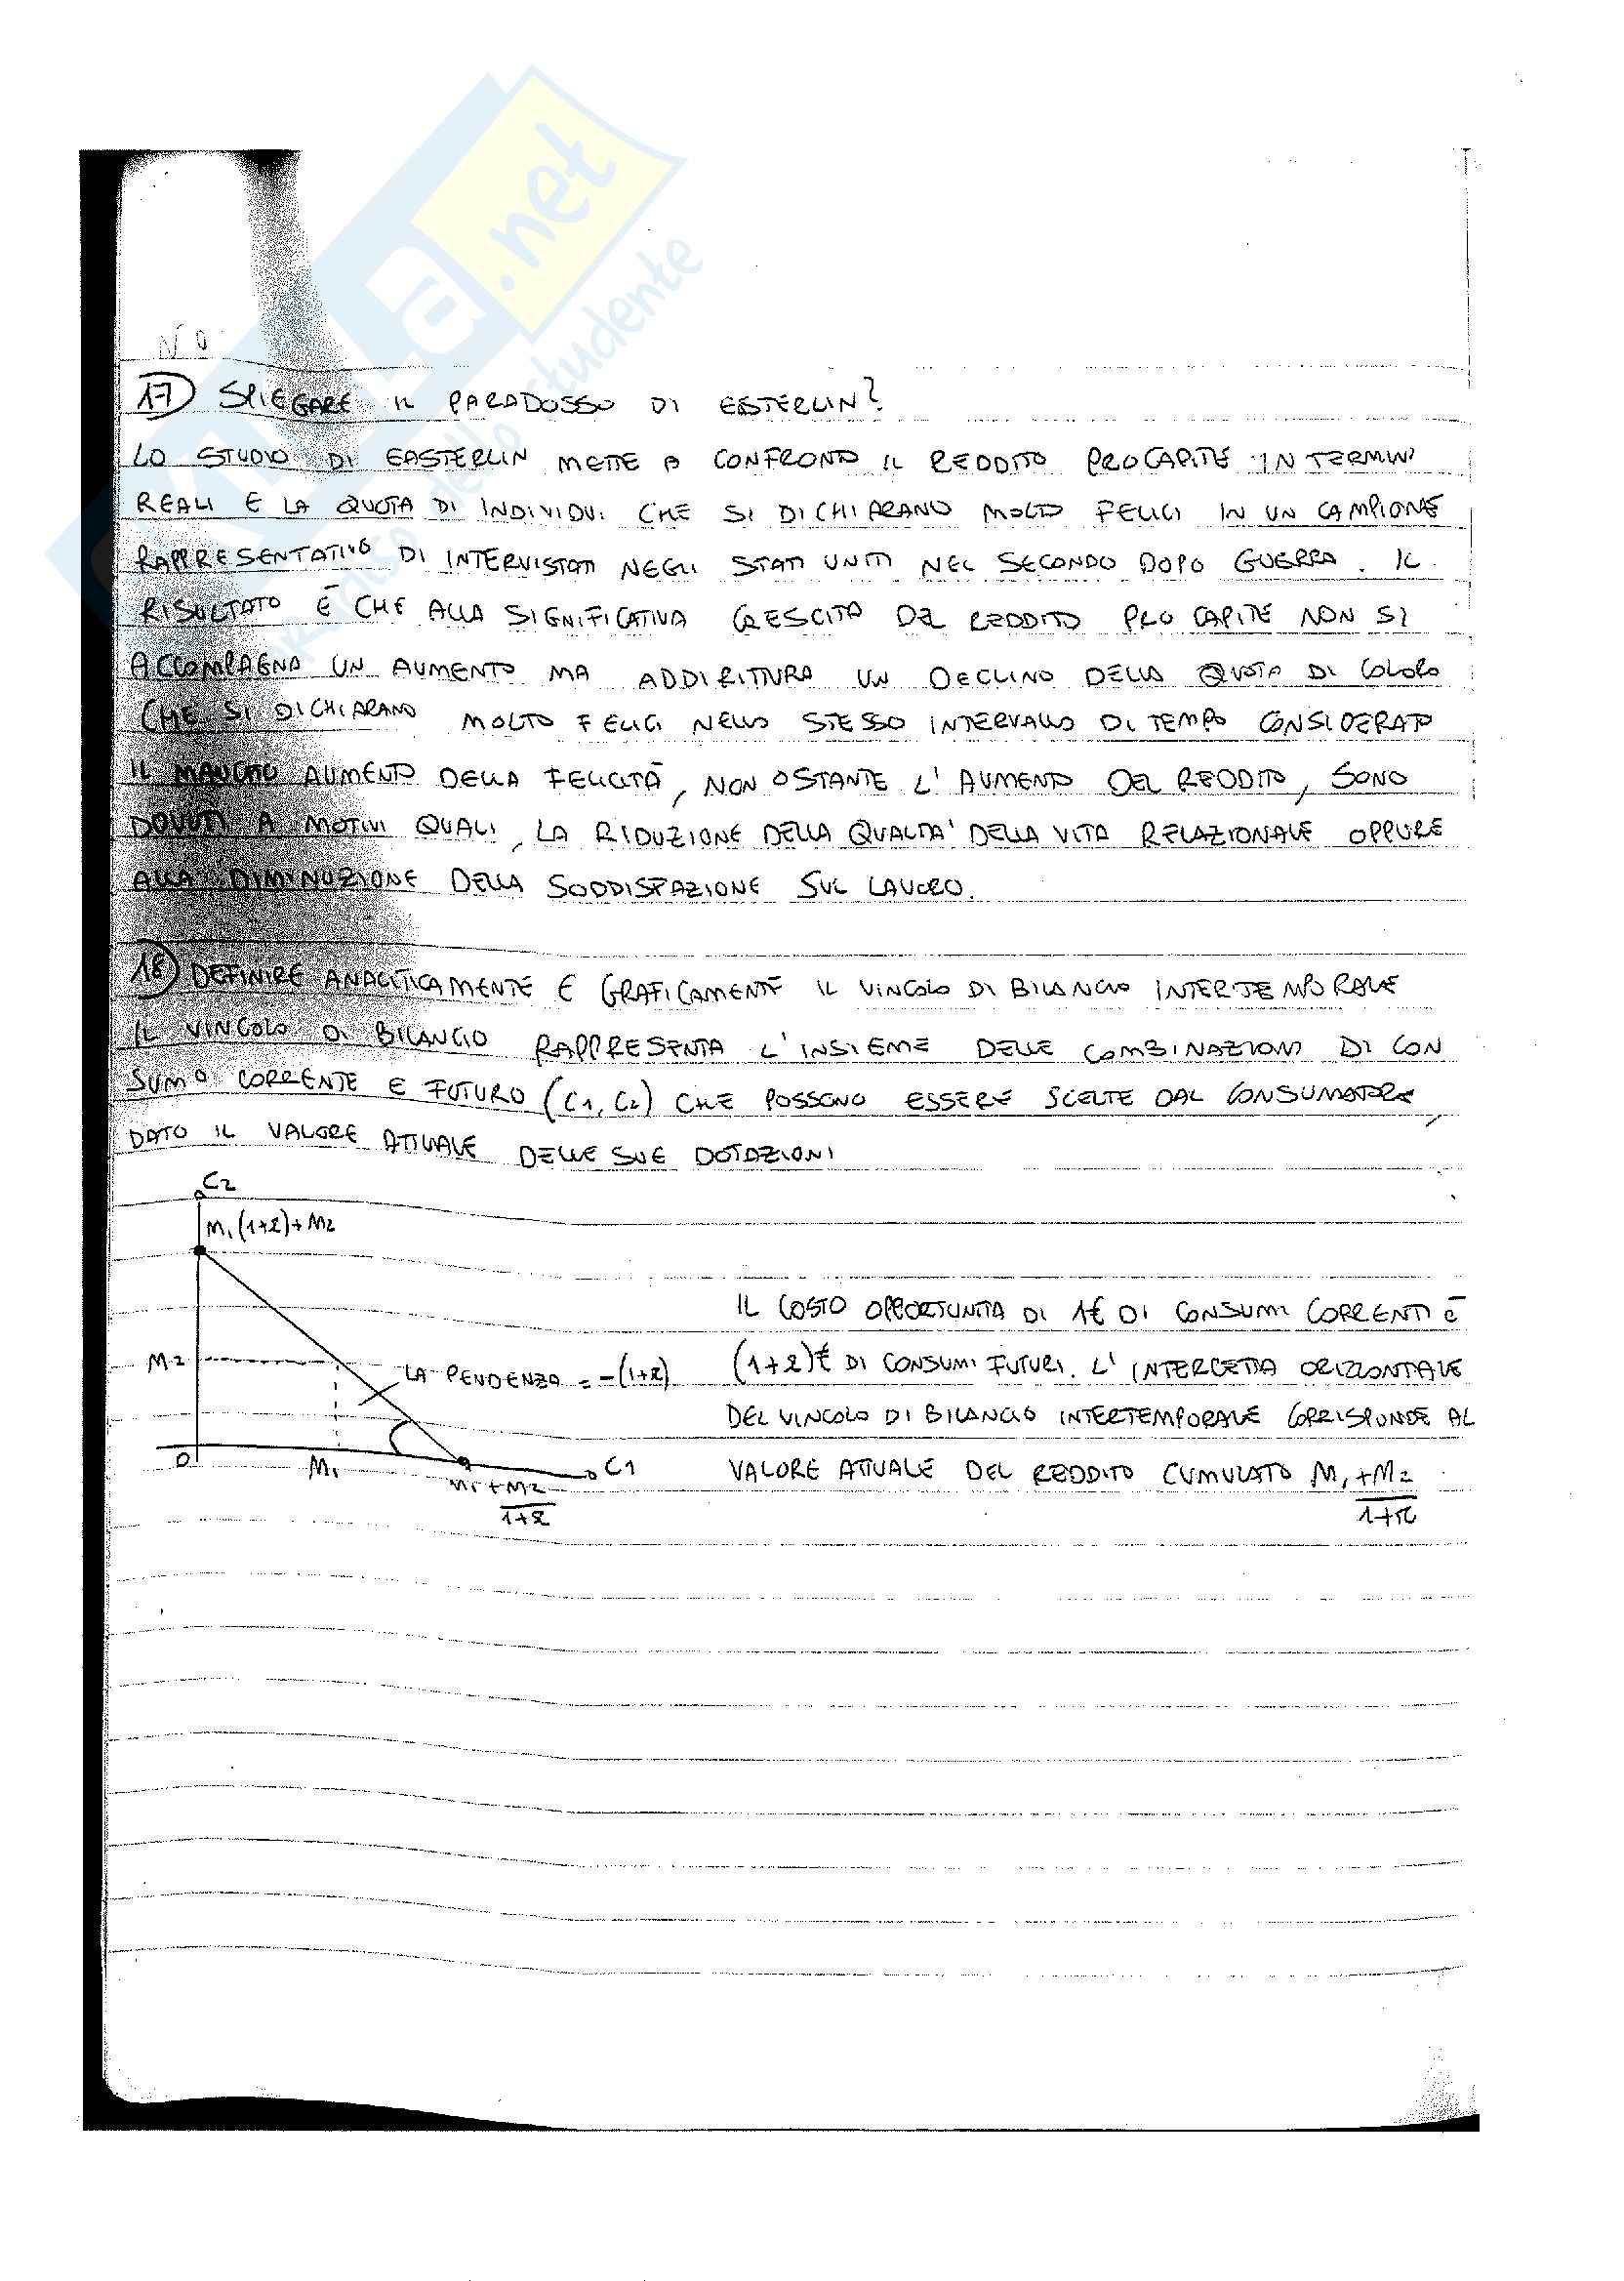 .net
N 9
17) SPIEGARE IL PARADOSSO DI ESTERLIN?
LO STUDIO DI EASTERLIN METTE A CONFRONTO IL REDDITO PROCAPITE IN TERMINI
REALI E LA QUOTA DI INDIVIDUI CHE SI DICHIARANO MOLTO FELICI IN UN CAMPIONE
RAPPRESENTATIVO DI INTERVISTATI NEGLI STATI UNITI NEL SECONDO DOPO GUERRA. IL
RISULTATO È CHE ALLA SIGNIFICATIVA CRESCITA DEL REDDITO PRO CAPITE NON SI
ACCOMPAGNA UN AUMENTO MA ADDIRITTURA UN DECLINO DELLA QUOTA DI COLORO
CHE SI DICHIARANO MOLTO FELICI NELLO STESSO INTERVALLO DI TEMPO CONSIDERATO
IL MANCATO AUMENTO DELLA FELICITÀ, NON OSTANTE L'AUMENTO DEL REDDITO, SONO
DOVUTI A MOTIVI QUALI, LA RIDUZIONE DELLA QUALITA' DELLA VITA RELAZIONALE OPPURE
ALLA DIMINUZIONE DELLA SODDISFAZIONE SUL LAVORO.
18) DEFINIRE ANALITICAMENTE E GRAFICAMENTE IL VINCOLO DI BILANCIO INTERTEMPORALE
IL VINCOLO DI BILANCIO RAPPRESENTA L'INSIEME DELLE COMBINAZIONI DI CON
SUMO CORRENTE E FUTURO (C1, C2) CHE POSSONO ESSERE SCELTE DAL CONSUMATORE,
DATO IL VALORE ATTUALE DELLE SUE DOTAZIONI
C2
M1(1+r)+M2
M2
LA PENDENZA = -(1+r)
O
M1
M1+M2
1+r
C1
IL COSTO OPPORTUNITA DI 1€ DI CONSUMI CORRENTI È
(1+r)€ DI CONSUMI FUTURI. L'INTERCETTA ORIZZONTALE
DEL VINCOLO DI BILANCIO INTERTEMPORALE CORRISPONDE AL
VALORE ATTUALE DEL REDDITO CUMULATO M1+M2
1+r